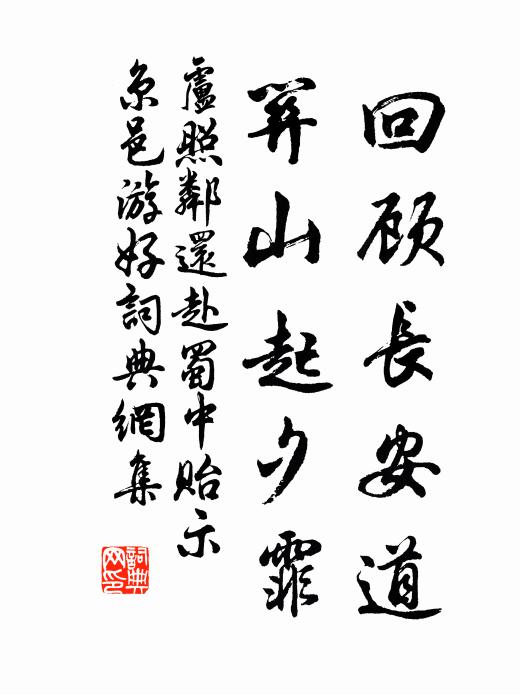 回顾長安道
關山起夕霏
盧照鄰還赴蜀中貽示
京邑游好詞典網集
詞典网印